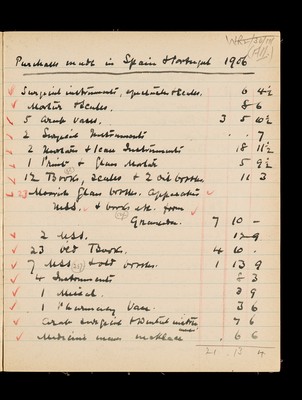 WA/HMM
Purchases made in Spain & Portugal 1906
Surgical instruments, spectacles & scales. 6 4½
Mortar & Scales. 8 6
5 Arab Vases. 3 5 10½
2 Surgical Instruments . . 7
2 Mortars & 1 Iron Instruments 18 11½
1 Print & Glass Mortar 5 9½
12 Books, scales & 2 oil bottles 11 3
23 Moorish Glass bottles. Apparatus
MSS. & books etc. from
Granada. 7 10 -
2 MSS. 12 9
23 Old Books. 4 10 .
7 MSS & old books. 1 13 9
4 Instruments 8 3
1 Medal. 3 9
1 Pharmacy Vase. 3 6
Arab surgical & Dental instru
ments 7 6
Medicine mans necklace 6 6
21 13 4